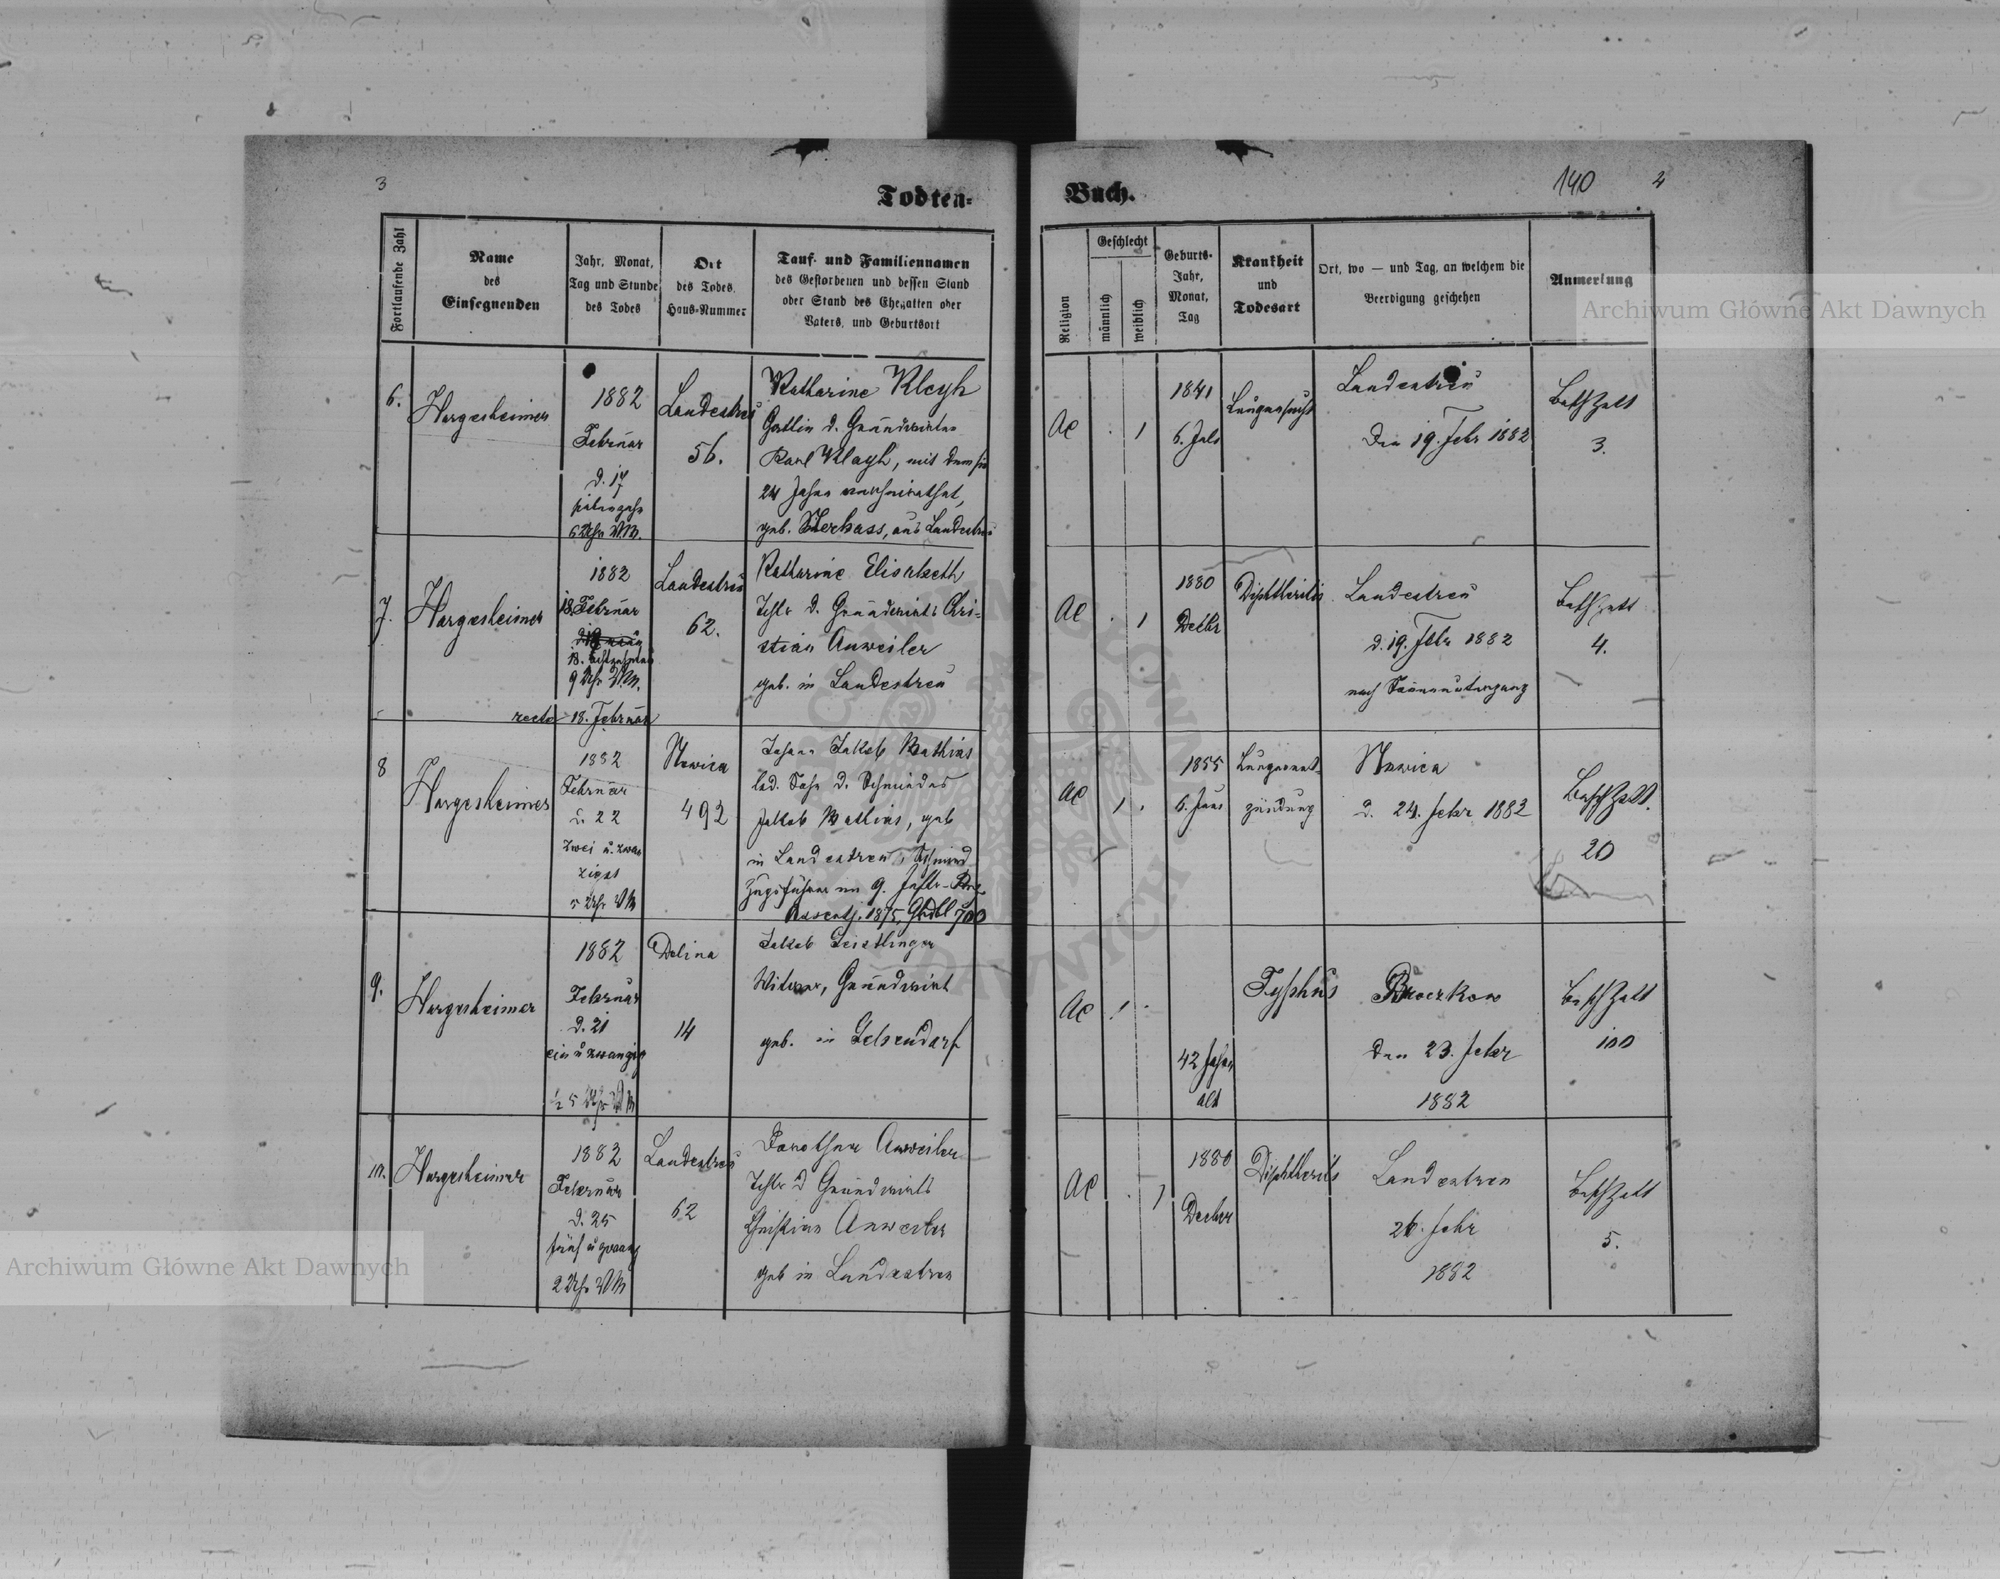 3
Todten-
Buch.
140
4
Fortlaufende Zahl
Name
des
Einsegnenden
Jahr, Monat,
Tag und Stunde
des Todes
Ort
des Todes,
Haus-Nummer
Tauf- und Familiennamen
des Gestorbenen und dessen Stand
oder Stand des Ehegatten oder
Vaters, und Geburtsort
Religion
Geschlecht
männlich
weiblich
Geburts-
Jahr,
Monat,
Tag
Krankheit
und
Todesart
Ort, wo — und Tag, an welchem die
Beerdigung geschehen
Anmerkung
Archiwum Główne Akt Dawnych
6.
Hargesheimer
1882
Februar
d. 17
6 Uhr VM.
Landestreu
56.
Katharine Kleyh
Gattin d. Grundwirtes
Karl Kleyh, mit dem sie
24 Jahre verheirathet,
geb. aus Landestreu
AC
. 1
1841
6. Juli
Lungensucht
Landestreu
den 19. Febr 1882
BethZett
3.
7.
Hargesheimer
1882
18. Februar
18. achtzehnten
9 Uhr VM.
recte 18. Februar
Landestreu
62.
Katharine Elisabeth
Tchtr d. Grundwirts Chri-
stian Anweiler
geb. in Landestreu
AC
. 1
1880
Decbr
Diphtheritis
Landestreu
d. 19. Febr 1882
nach Sonnenuntergang
BethZett
4.
8
Hargesheimer
1882
Februar
d. 22
zwei u. zwan
zigst
5 Uhr VM
Nowica
492
Johann Jakob Mathias
led. Sohn d. Schmiedes
Jakob Mathias, geb
in Landestreu, Schmied
Zugsführer im 9. Inftr-Reg
1875, 700
AC
1 .
1855
6. Juni
Lungenent-
zündung
Nowica
d. 24. Febr 1882
BeschZett.
20
9.
Hargesheimer
1882
Februar
d. 21
ein u zwanzig
½ 5 Uhr VM
Dolina
14
Jakob
Witwer, Grundwirt
geb. in Gelsendorf
AC
1 .
42 Jahre
alt
Typhus
Broczkow
den 23. Febr
1882
BeschZett
100
10.
Hargesheimer
1882
Februar
d. 25
fünf u zwanz
2 Uhr VM
Landestreu
62
Dorothea Anweiler
Tchtr d Grundwirts
Christian Anweiler
geb in Landestreu
AC
. 1
1880
Decber
Diphtheritis
Landestreu
26. Febr
1882
BeschZett
5.
Archiwum Główne Akt Dawnych